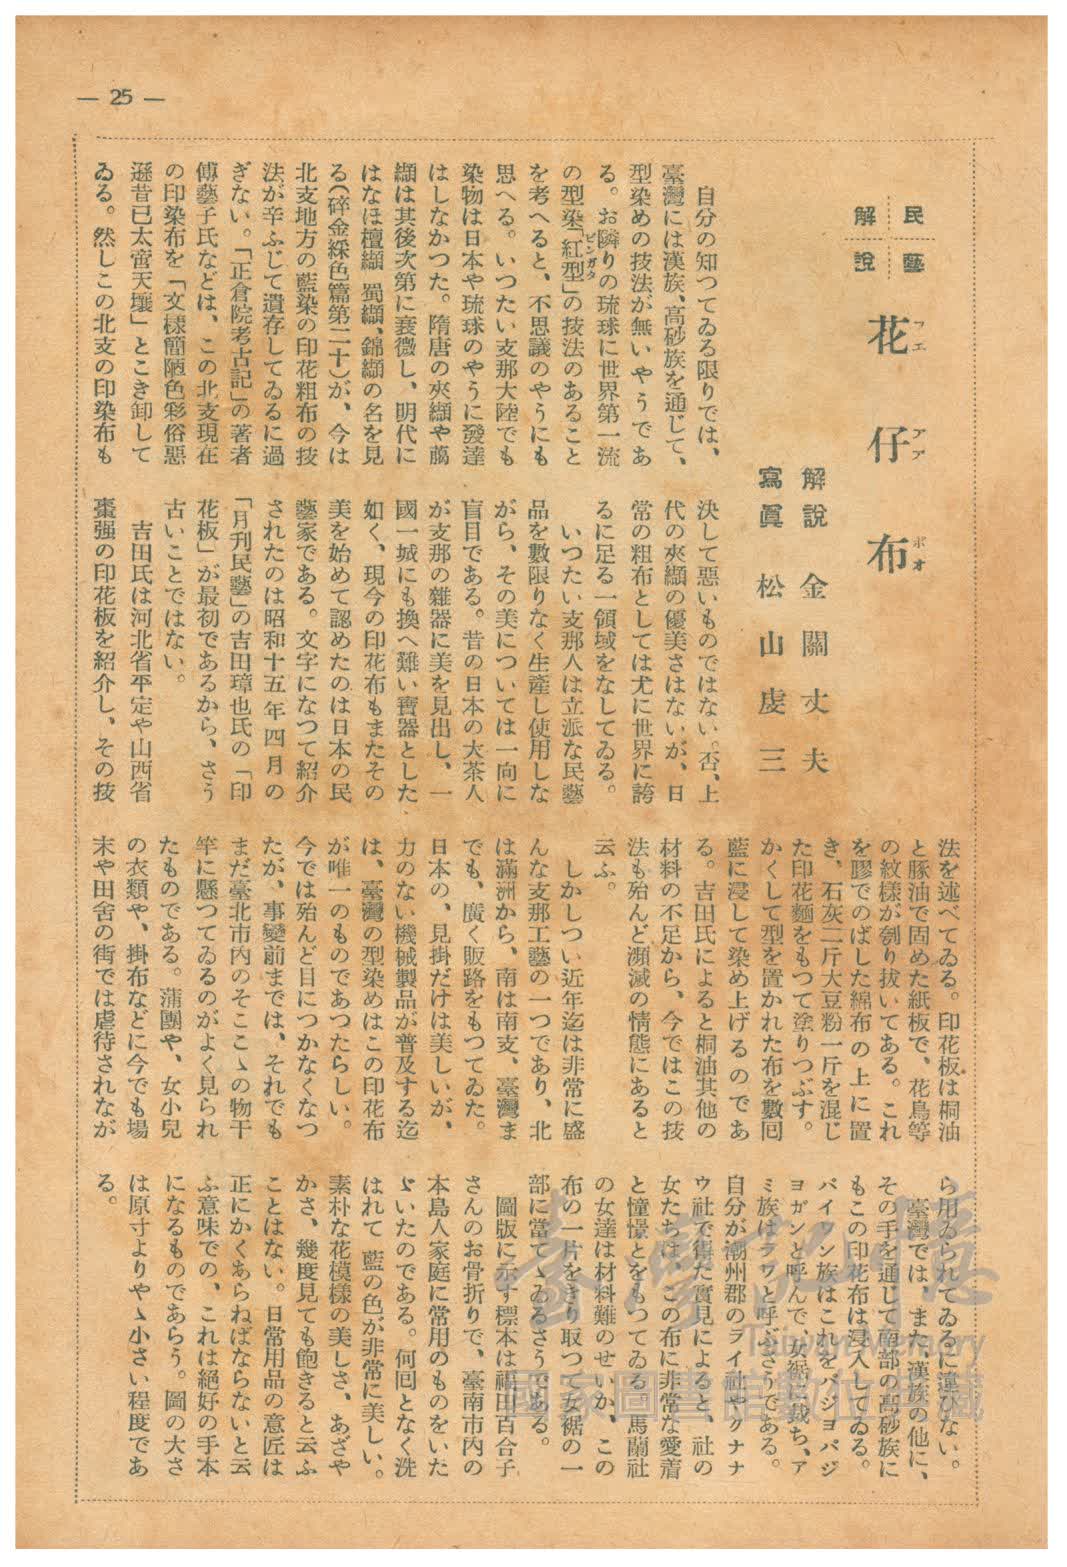 — 25 —
民藝解說
花仔布
フエ アア ボオ
解說 金關丈夫
寫眞 松山虔三
自分の知つてゐる限りでは、
臺灣には漢族、高砂族を通じて、
型染めの技法が無いやうであ
る。お隣りの琉球に世界第一流
の型染「紅型」の技法のあること
ビンガタ
を考へると、不思議のやうにも
思へる。いつたい支那大陸でも
染物は日本や琉球のやうに發達
はしなかつた。隋唐の夾纈や﨟
纈は其後次第に衰微し、明代に
はなほ檀纈、蜀纈、錦纈の名を見
る(碎金綵色篇第二十)が、今は
北支地方の藍染の印花粗布の技
法が辛ふじて遺存してゐるに過
ぎない。「正倉院考古記」の著者
傅藝子氏などは、この北支現在
の印染布を「文樣簡陋色彩俗惡
遜昔已太啻天壤」とこき卸して
ゐる。然しこの北支の印染布も
決して惡いものではない。否、上
代の夾纈の優美さはないが、日
常の粗布としては尤に世界に誇
るに足る一領域をなしてゐる。
いつたい支那人は立派な民藝
品を數限りなく生產し使用しな
がら、その美については一向に
盲目である。昔の日本の大茶人
が支那の雜器に美を見出し、一
國一城にも換へ難い寶器とした
如く、現今の印花布もまたその
美を始めて認めたのは日本の民
藝家である。文字になつて紹介
されたのは昭和十五年四月の
「月刊民藝」の吉田璋也氏の「印
花板」が最初であるから、さう
古いことではない。
吉田氏は河北省平定や山西省
棗强の印花板を紹介し、その技
法を述べてゐる。印花板は桐油
と豚油で固めた紙板で、花鳥等
の紋樣が刳り拔いてある。これ
を膠でのばした綿布の上に置
き、石灰二斤大豆粉一斤を混じ
た印花麵をもつて塗りつぶす。
かくして型を置かれた布を數囘
藍に浸して染め上げるのであ
る。吉田氏によると桐油其他の
材料の不足から、今ではこの技
法も殆んど瀕滅の情態にあると
云ふ。
しかしつい近年迄は非常に盛
んな支那工藝の一つであり、北
は滿洲から、南は南支、臺灣ま
でも、廣く販路をもつてゐた。
日本の、見掛だけは美しいが、
力のない機械製品が普及する迄
は、臺灣の型染めはこの印花布
が唯一のものであつたらしい。
今では殆んど目につかなくなつ
たが、事變前までは、それでも
まだ臺北市內のそここゝの物干
竿に懸つてゐるのがよく見られ
たものである。蒲團や、女小兒
の衣類や、掛布などに今でも場
末や田舍の街では虐待されなが
ら用ゐられてゐるに違ひない。
臺灣では、また、漢族の他に、
その手を通じて南部の高砂族に
もこの印花布は浸入してゐる。
パイワン族はこれをパジヨパジ
ヨガンと呼んで、女裾に裁ち、ア
ミ族はラワと呼ぶさうである。
自分が潮州郡のヲイ社やクナナ
ウ社で得た實見によると、社の
女たちは、この布に非常な愛着
と憧憬とをもつてゐる。馬蘭社
の女達は材料難のせいか、この
布の一片をきり取つて女裾の一
部に當てゝゐるさうである。
圖版に示す標本は福田百合子
さんのお骨折りで、臺南市內の
本島人家庭に常用のものをいた
ゞいたのである。何回となく洗
はれて 藍の色が非常に美しい。
素朴な花模樣の美しさ、あざや
かさ、幾度見ても飽きると云ふ
ことはない。日常用品の意匠は
正にかくあらねばならないと云
ふ意味での、これは絕好の手本
になるものであらう。圖の大さ
は原寸よりやゝ小さい程度であ
る。
臺灣記憶
Taiwan Memory
國家圖書館數位典藏